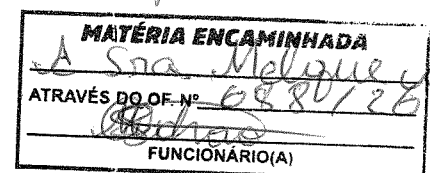 MATÉRIA ENCAMINHADA
A Sra.
ATRAVÉS DO OF. Nº 688/26
FUNCIONÁRIO(A)